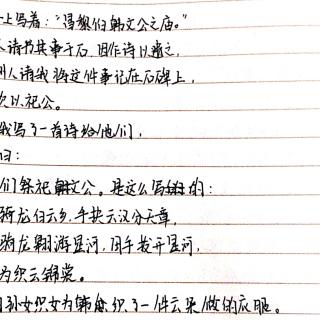 上写着："昌黎伯韩文公之庙。"
人请书其事于石,因作诗以遗之,
别人请我将这件事记在石碑上,
次以祀公。
我写了一首诗给他们,
曰:
们祭祀韩文公。是这么写的:
骑龙白云乡,手抉云汉分天章,
骑龙翱游星河,用手拨开星河,
为织云锦裳。
孙女织女为韩愈织了一件云朵做的衣服。